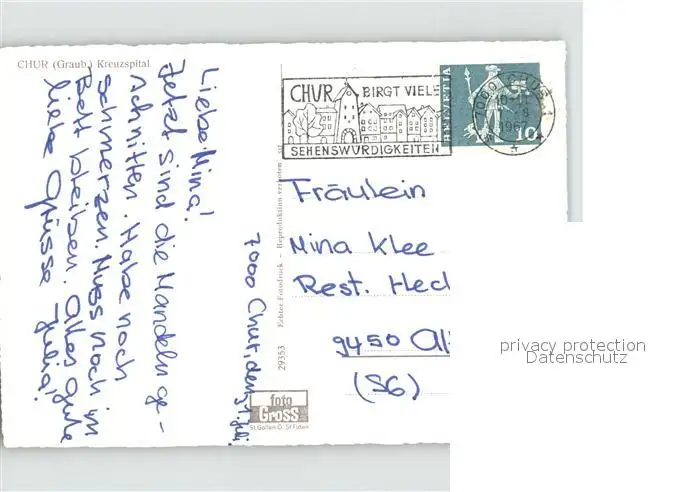 CHUR (Graub.) Kreuzspital
Liebe Mina!
Jetzt sind die Mandeln ge-
schnitten. Habe noch
schmerzen. Muss noch im
Bett bleiben. Alles gute
liebe Grüsse Julia!
7000 Chur, den 31. Juli.
29353 Echter Fotodruck – Reproduktion verboten
foto
Gross
St. Gallen O. St Fiden
CHUR BIRGT VIELE
SEHENSWÜRDIGKEITEN
7000 CHUR 1
1967
HELVETIA
10
Fräulein
Mina Klee
Rest. Hec
9450 Al
(SG)
privacy protection
Datenschutz